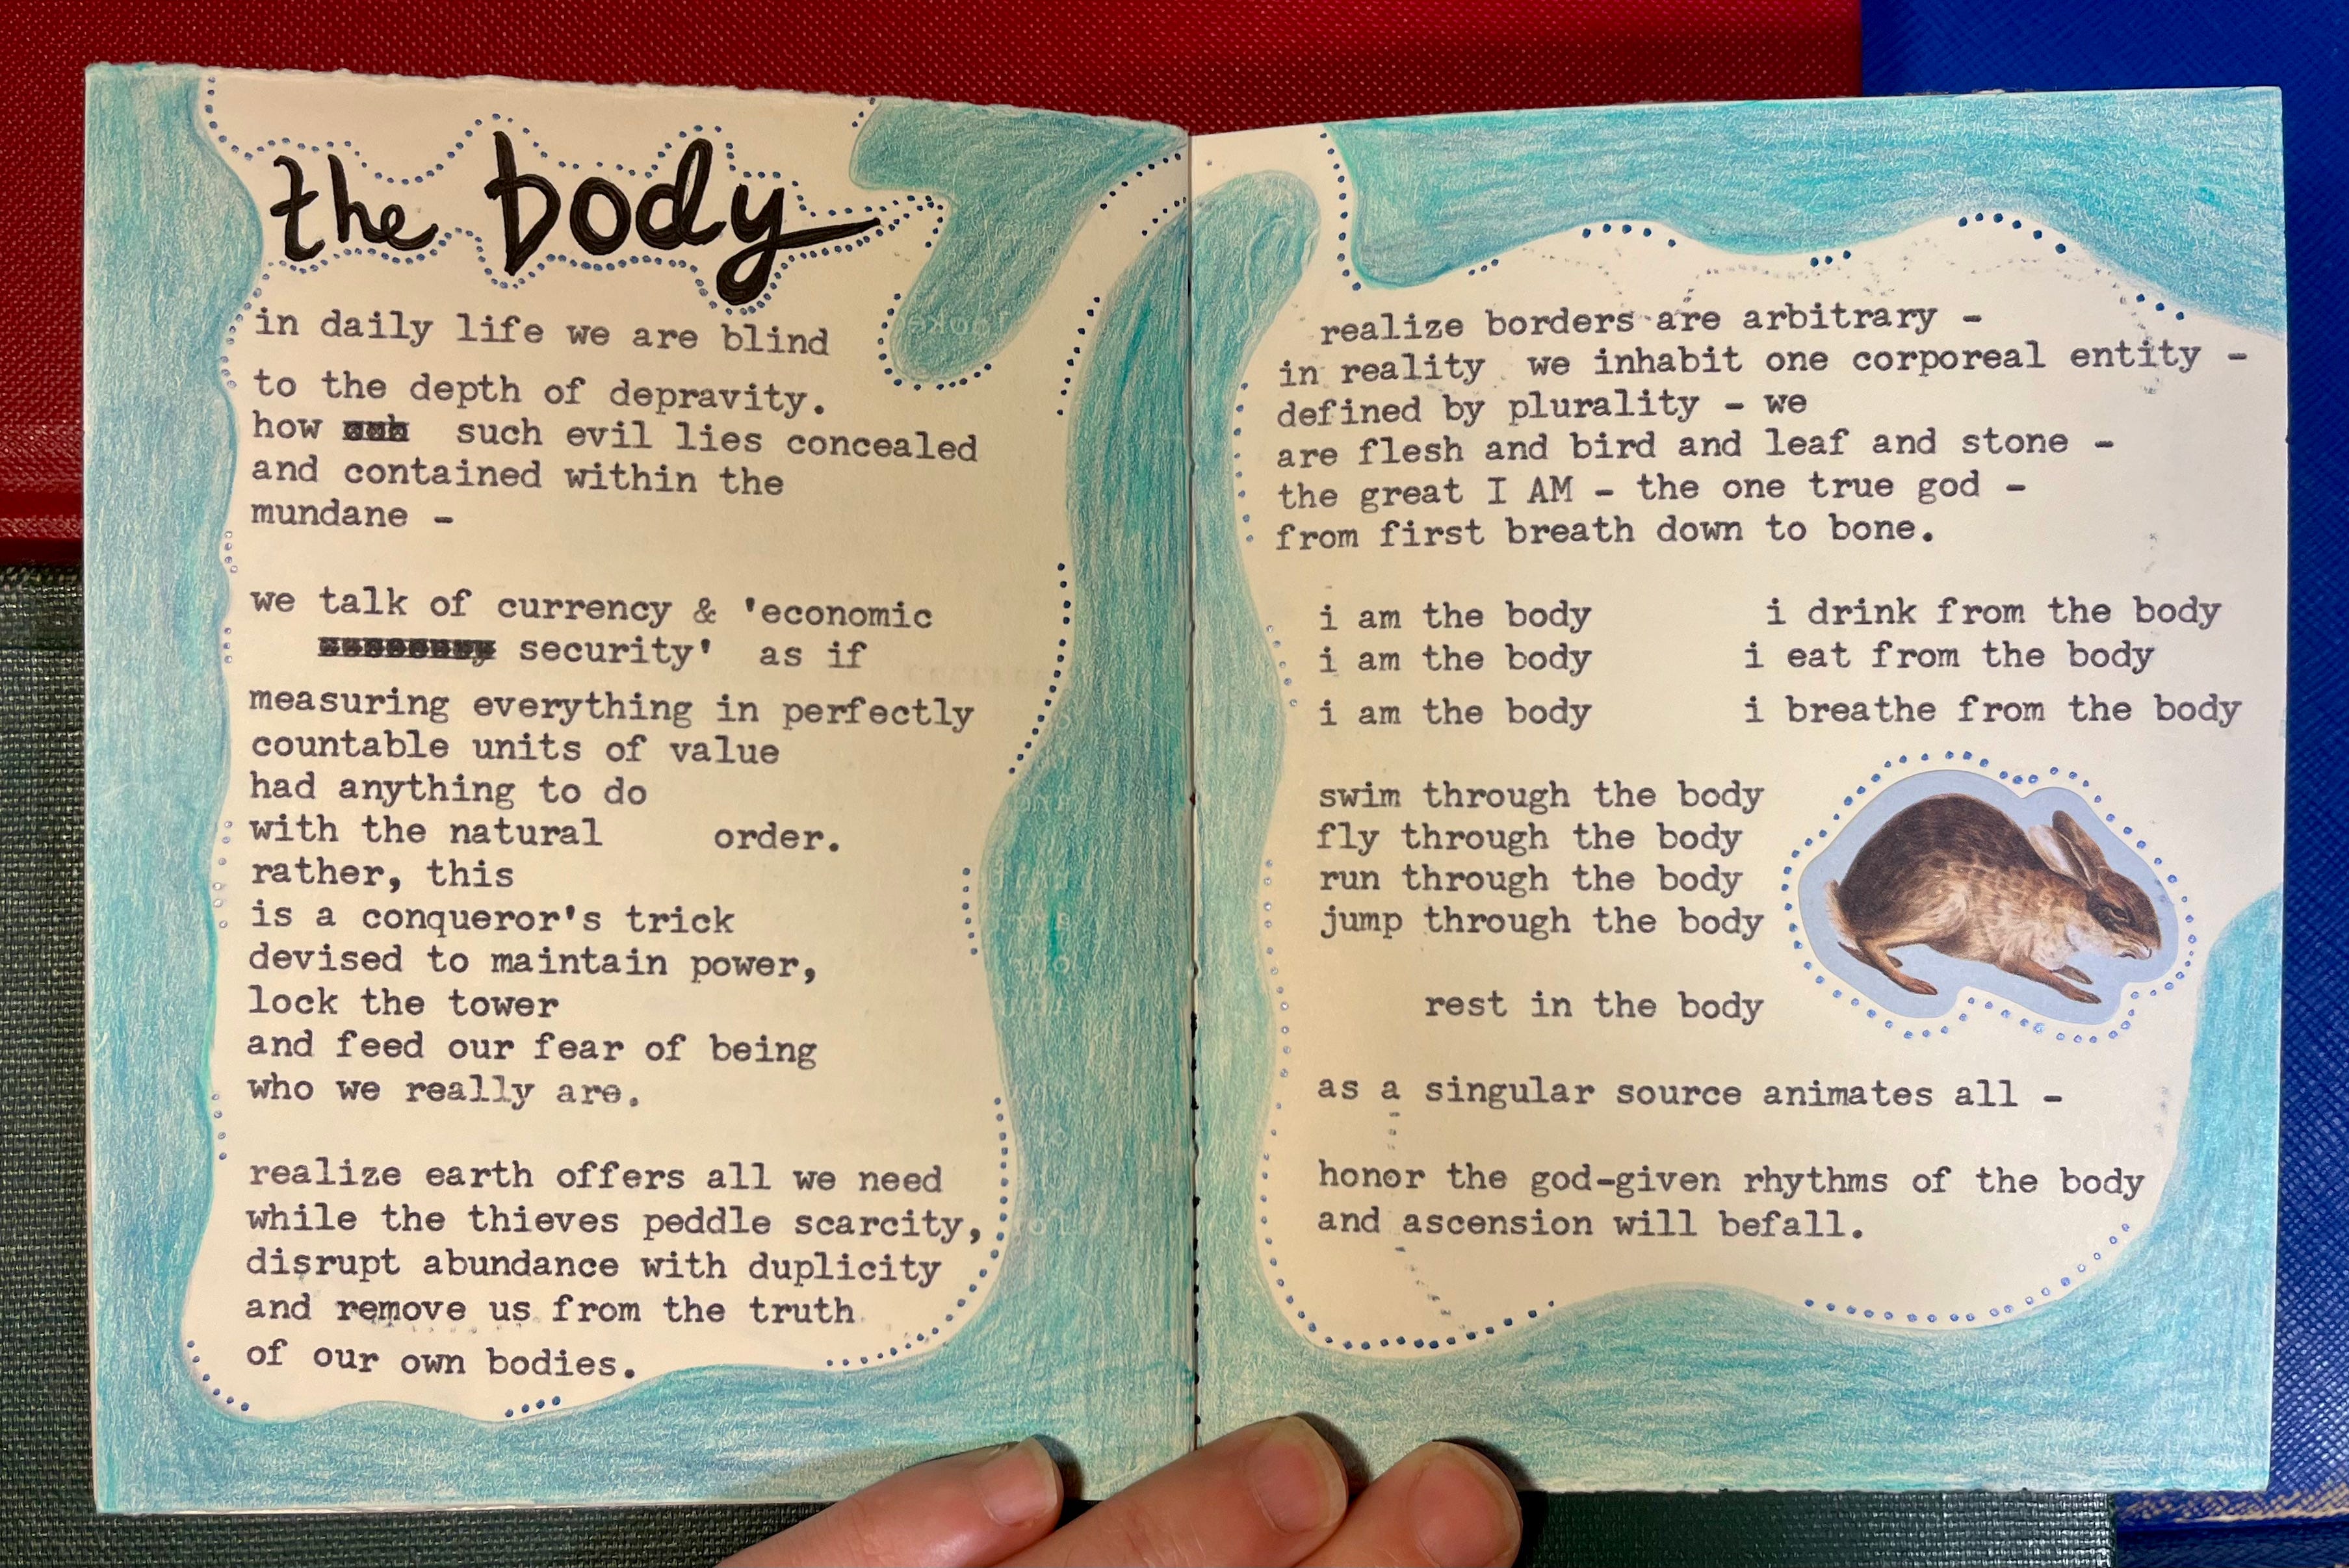 the body
in daily life we are blind
to the depth of depravity.
how such evil lies concealed
and contained within the
mundane -
we talk of currency & 'economic
security' as if
measuring everything in perfectly
countable units of value
had anything to do
with the natural order.
rather, this
is a conqueror's trick
devised to maintain power,
lock the tower
and feed our fear of being
who we really are.
realize earth offers all we need
while the thieves peddle scarcity,
disrupt abundance with duplicity
and remove us from the truth
of our own bodies.
realize borders are arbitrary -
in reality we inhabit one corporeal entity -
defined by plurality - we
are flesh and bird and leaf and stone -
the great I AM - the one true god -
from first breath down to bone.
i am the body i drink from the body
i am the body i eat from the body
i am the body i breathe from the body
swim through the body
fly through the body
run through the body
jump through the body
rest in the body
as a singular source animates all -
honor the god-given rhythms of the body
and ascension will befall.